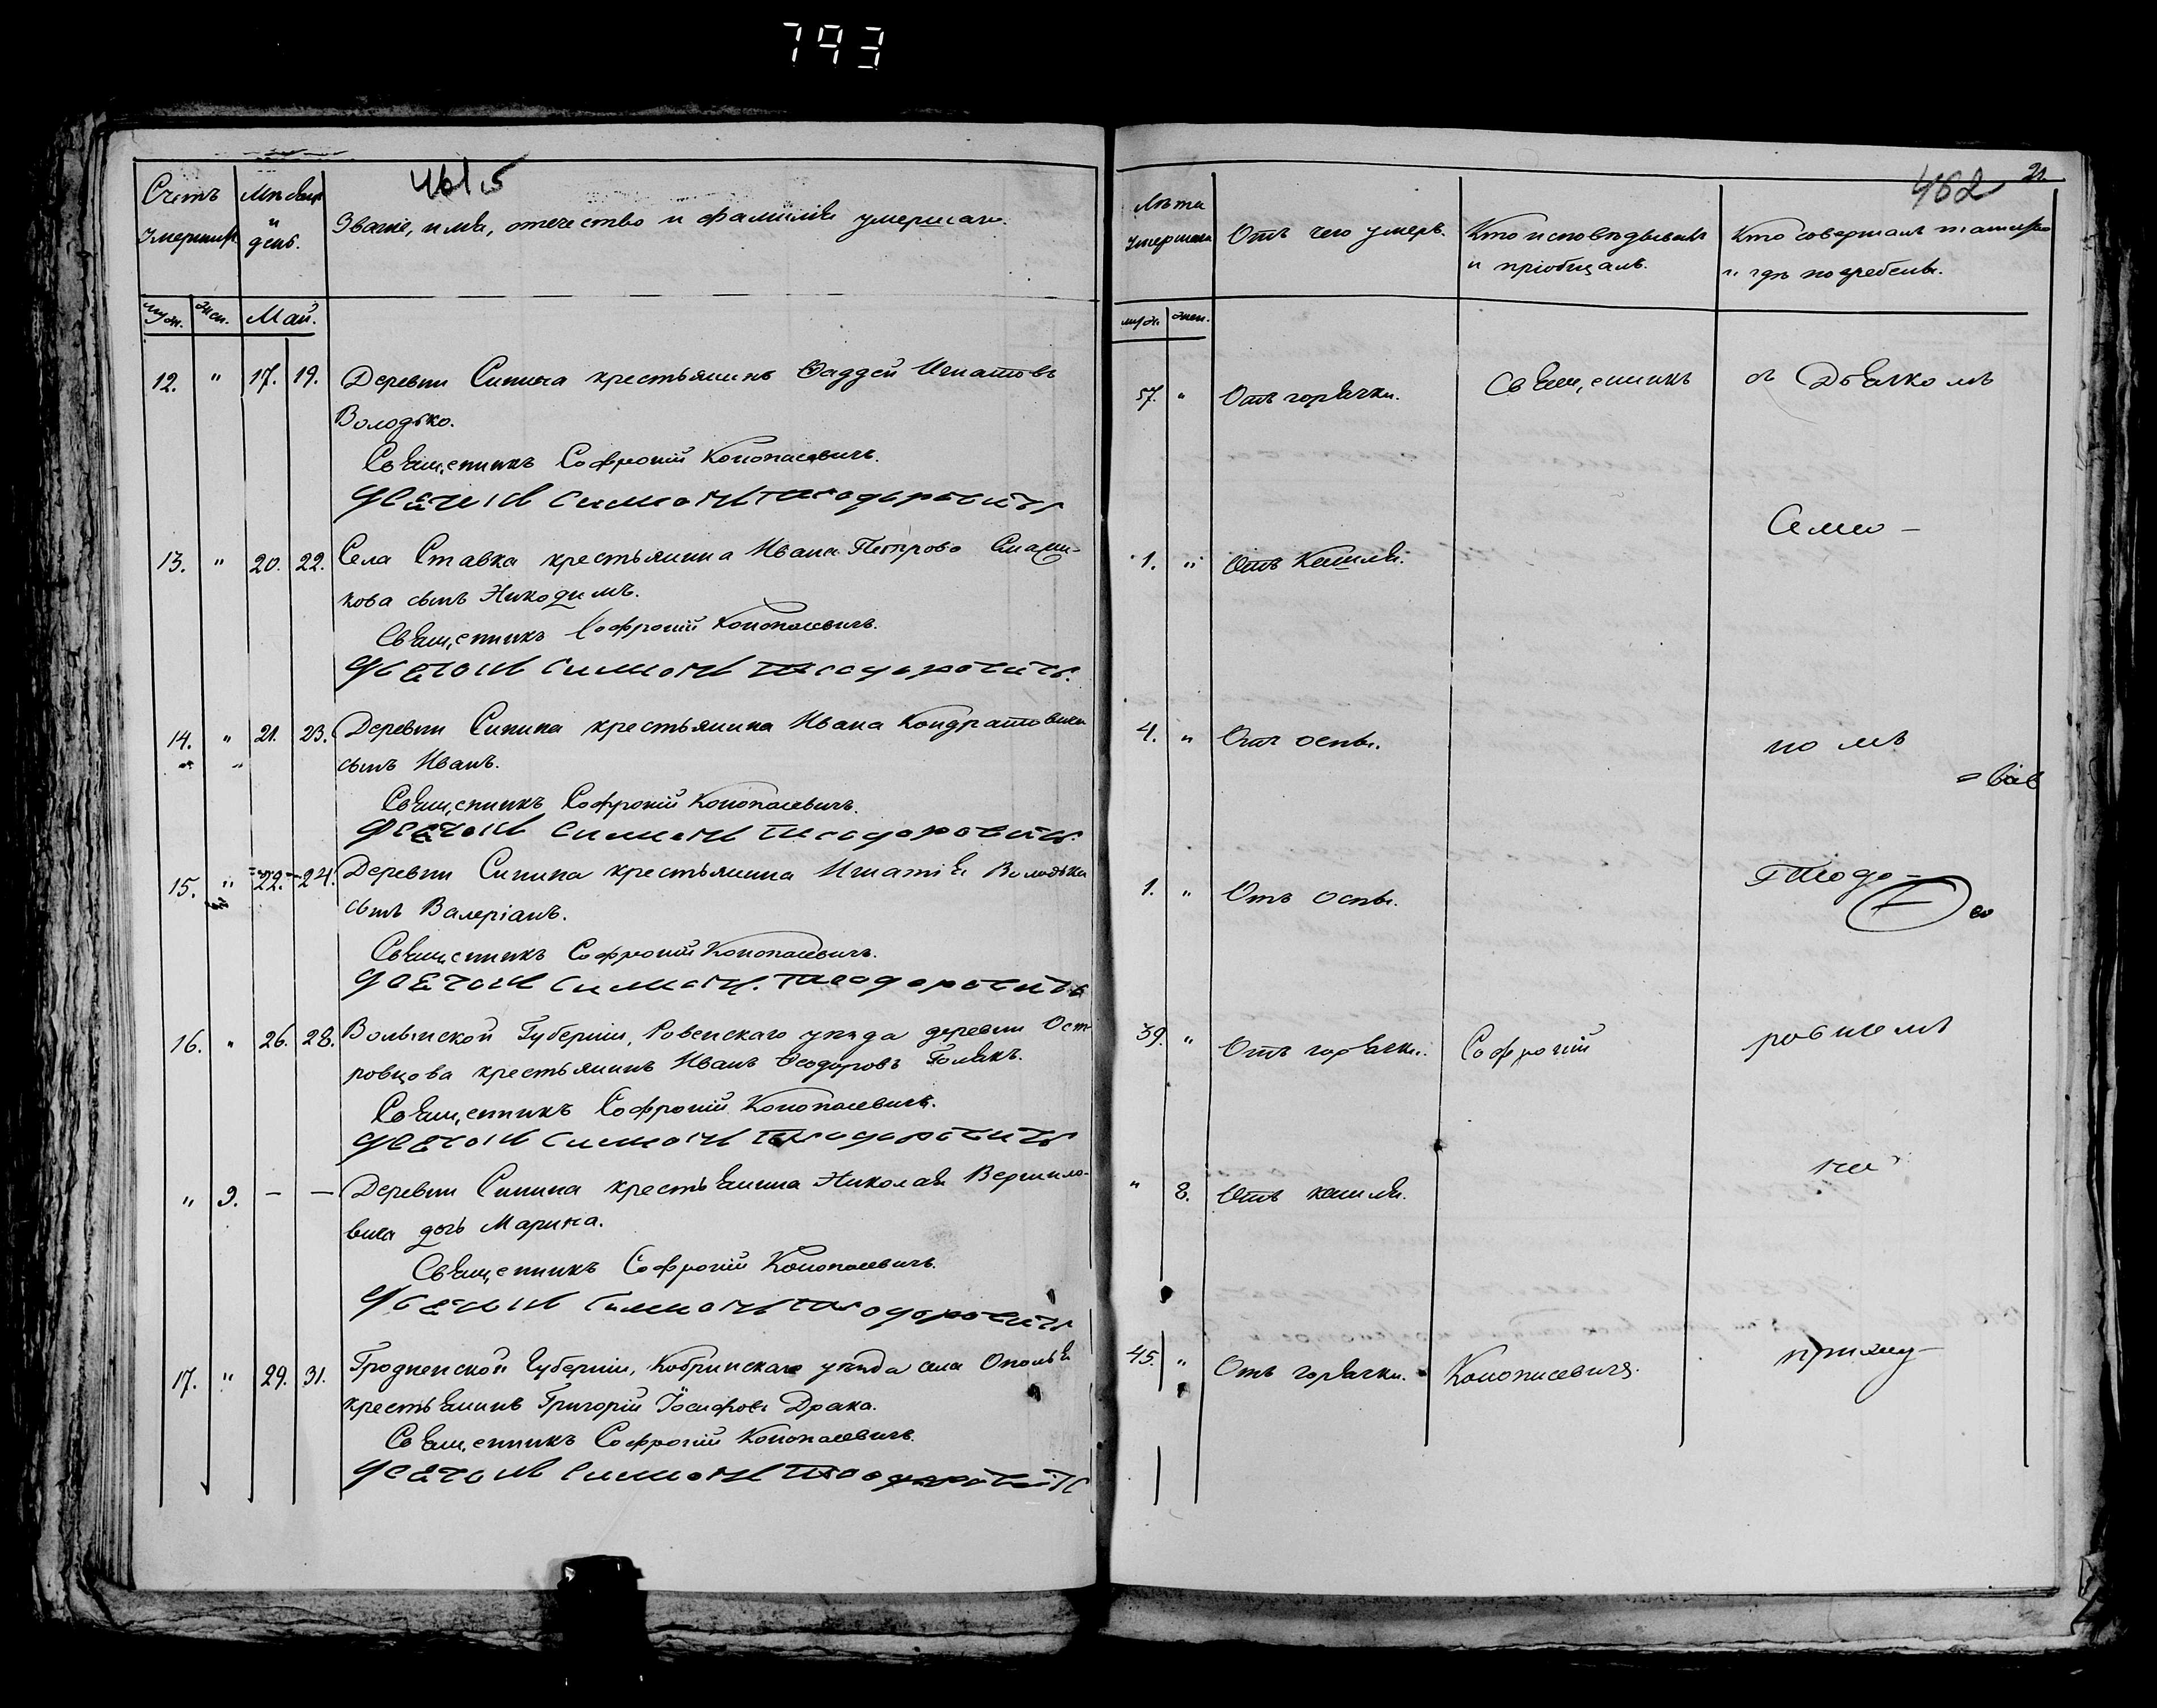 793
461 5
Счетъ умершихъ
Мѣсяцъ и день.
Званіе, имя, отечество и фамилія умершаго.
муж. жен. Май.
12. " 17. 19. Деревни Сипича крестьянинъ Ѳаддей Игнатовъ
Володько.
Священникъ Софроній Конопасевичъ.
Дьячокъ Симеонъ Теодоровичъ
13. " 20. 22. Села Ставка крестьянина Ивана Петрова
кова сынъ Никодимъ.
Священникъ Софроній Конопасевичъ.
Дьячокъ Симеонъ Теодоровичъ.
14. " 21. 23. Деревни Сипича крестьянина Ивана Кондратовича
сынъ Иванъ.
Священникъ Софроній Конопасевичъ.
Дьячокъ Симеонъ Теодоровичъ.
15. " 22. 24. Деревни Сипича крестьянина Игнатія Володька
сынъ Валеріанъ.
Священникъ Софроній Конопасевичъ.
Дьячокъ Симеонъ Теодоровичъ
16. " 26. 28. Волынской Губерніи, Ровенскаго уѣзда деревни Ост
ровцова крестьянинъ Иванъ Ѳеодоровъ
Священникъ Софроній Конопасевичъ.
Дьячокъ Симеонъ Теодоровичъ
" 9. — — Деревни Сипича крестьянина Николая Вермило-
вича дочь Марина.
Священникъ Софроній Конопасевичъ.
Дьячокъ Симеонъ Теодоровичъ
17. " 29. 31. Гродненской Губерніи, Кобринскаго уѣзда села Ополья
крестьянинъ Григорій Іосифовъ Драка.
Священникъ Софроній Конопасевичъ.
Дьячокъ Симеонъ Теодоровичъ
462 21.
Лѣта умершаго
Отъ чего умеръ.
Кто исповѣдывалъ
и пріобщалъ.
Кто совершалъ
и гдѣ погребены.
муж. жен.
57. " Отъ горячки. Священникъ съ Дьячкомъ
Симе-
1. " Отъ кашля.
4. " Отъ оспы. ономъ
1. " Отъ оспы. Теодо-
39. " Отъ горячки. Софроній ровичемъ
" 8. Отъ кашля. на
45. " Отъ горячки. Конопасевичъ.